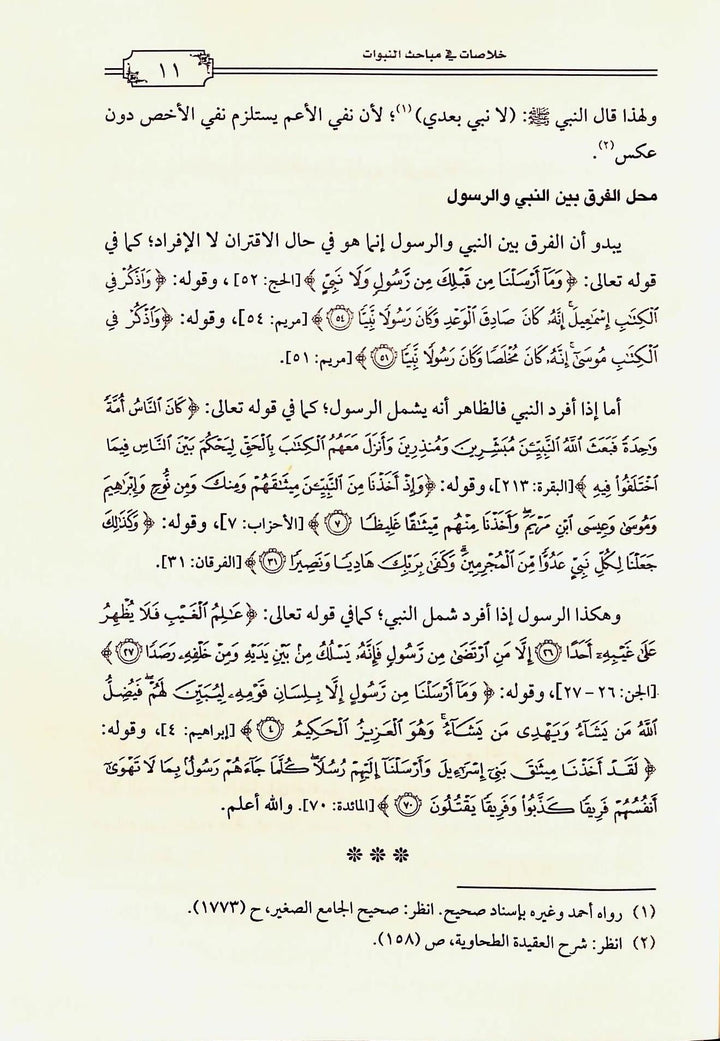 خلاصات في مباحث النبوات
١١
ولهذا قال النبي ﷺ: (لا نبي بعدي)(١)؛ لأن نفي الأعم يستلزم نفي الأخص دون
عكس(٢).
محل الفرق بين النبي والرسول
يبدو أن الفرق بين النبي والرسول إنما هو في حال الاقتران لا الإفراد؛ كما في
قوله تعالى: ﴿ وَمَآ أَرْسَلْنَا مِن قَبْلِكَ مِن رَّسُولٍ وَلَا نَبِيٍّ ﴾ [الحج: ٥٢]، وقوله: ﴿ وَٱذْكُرْ فِى
ٱلْكِتَٰبِ إِسْمَٰعِيلَ إِنَّهُۥ كَانَ صَادِقَ ٱلْوَعْدِ وَكَانَ رَسُولًا نَّبِيًّا ٥٤ ﴾ [مريم: ٥٤]، وقوله: ﴿ وَٱذْكُرْ فِى
ٱلْكِتَٰبِ مُوسَىٰٓ إِنَّهُۥ كَانَ مُخْلَصًا وَكَانَ رَسُولًا نَّبِيًّا ٥١ ﴾ [مريم: ٥١].
أما إذا أفرد النبي فالظاهر أنه يشمل الرسول؛ كما في قوله تعالى: ﴿ كَانَ ٱلنَّاسُ أُمَّةً
وَٰحِدَةً فَبَعَثَ ٱللَّهُ ٱلنَّبِيِّۦنَ مُبَشِّرِينَ وَمُنذِرِينَ وَأَنزَلَ مَعَهُمُ ٱلْكِتَٰبَ بِٱلْحَقِّ لِيَحْكُمَ بَيْنَ ٱلنَّاسِ فِيمَا
ٱخْتَلَفُوا۟ فِيهِ ﴾ [البقرة: ٢١٣]، وقوله: ﴿ وَإِذْ أَخَذْنَا مِنَ ٱلنَّبِيِّۦنَ مِيثَٰقَهُمْ وَمِنكَ وَمِن نُّوحٍ وَإِبْرَٰهِيمَ
وَمُوسَىٰ وَعِيسَى ٱبْنِ مَرْيَمَ وَأَخَذْنَا مِنْهُم مِّيثَٰقًا غَلِيظًا ٧ ﴾ [الأحزاب: ٧]، وقوله: ﴿ وَكَذَٰلِكَ
جَعَلْنَا لِكُلِّ نَبِيٍّ عَدُوًّا مِّنَ ٱلْمُجْرِمِينَ وَكَفَىٰ بِرَبِّكَ هَادِيًا وَنَصِيرًا ٣١ ﴾ [الفرقان: ٣١].
وهكذا الرسول إذا أفرد شمل النبي؛ كما في قوله تعالى: ﴿ عَٰلِمُ ٱلْغَيْبِ فَلَا يُظْهِرُ
عَلَىٰ غَيْبِهِۦٓ أَحَدًا ٢٦ إِلَّا مَنِ ٱرْتَضَىٰ مِن رَّسُولٍ فَإِنَّهُۥ يَسْلُكُ مِنۢ بَيْنِ يَدَيْهِ وَمِنْ خَلْفِهِۦ رَصَدًا ٢٧ ﴾
[الجن: ٢٦-٢٧]، وقوله: ﴿ وَمَآ أَرْسَلْنَا مِن رَّسُولٍ إِلَّا بِلِسَانِ قَوْمِهِۦ لِيُبَيِّنَ لَهُمْ فَيُضِلُّ
ٱللَّهُ مَن يَشَآءُ وَيَهْدِى مَن يَشَآءُ وَهُوَ ٱلْعَزِيزُ ٱلْحَكِيمُ ٤ ﴾ [إبراهيم: ٤]، وقوله:
﴿ لَقَدْ أَخَذْنَا مِيثَٰقَ بَنِىٓ إِسْرَٰٓءِيلَ وَأَرْسَلْنَآ إِلَيْهِمْ رُسُلًا كُلَّمَا جَآءَهُمْ رَسُولٌۢ بِمَا لَا تَهْوَىٰٓ
أَنفُسُهُمْ فَرِيقًا كَذَّبُوا۟ وَفَرِيقًا يَقْتُلُونَ ٧٠ ﴾ [المائدة: ٧٠]. والله أعلم.
***
(١) رواه أحمد وغيره بإسناد صحيح. انظر: صحيح الجامع الصغير، ح (١٧٧٣).
(٢) انظر: شرح العقيدة الطحاوية، ص (١٥٨).